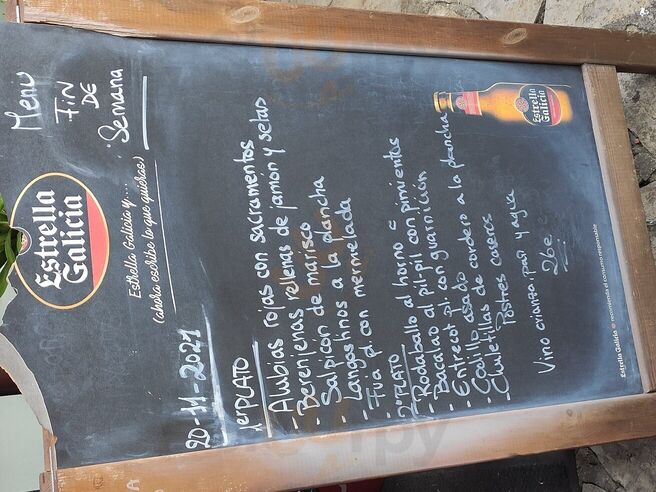 Menu
FIN
DE
Semana
Estrella
Galicia
Estrella Galicia y....
(ahora escribe lo que quieras)
20-11-2021
1er PLATO
- Alubias rojas con sacramentos
- Berenjenas rellenas de jamón y setas
- Salpicón de marisco
- Langostinos a la plancha
- Fua pl. con mermelada
2º PLATO
- Rodaballo al horno =
- Bacalao al pil-pil con pimientos
- Entrecot pl. con guarnición
- Gallo asado
- Chuletillas de cordero a la plancha
Postres caseros
Vino crianza pan y agua
26e
Estrella
Galicia
Estrella Galicia recomienda el consumo responsable